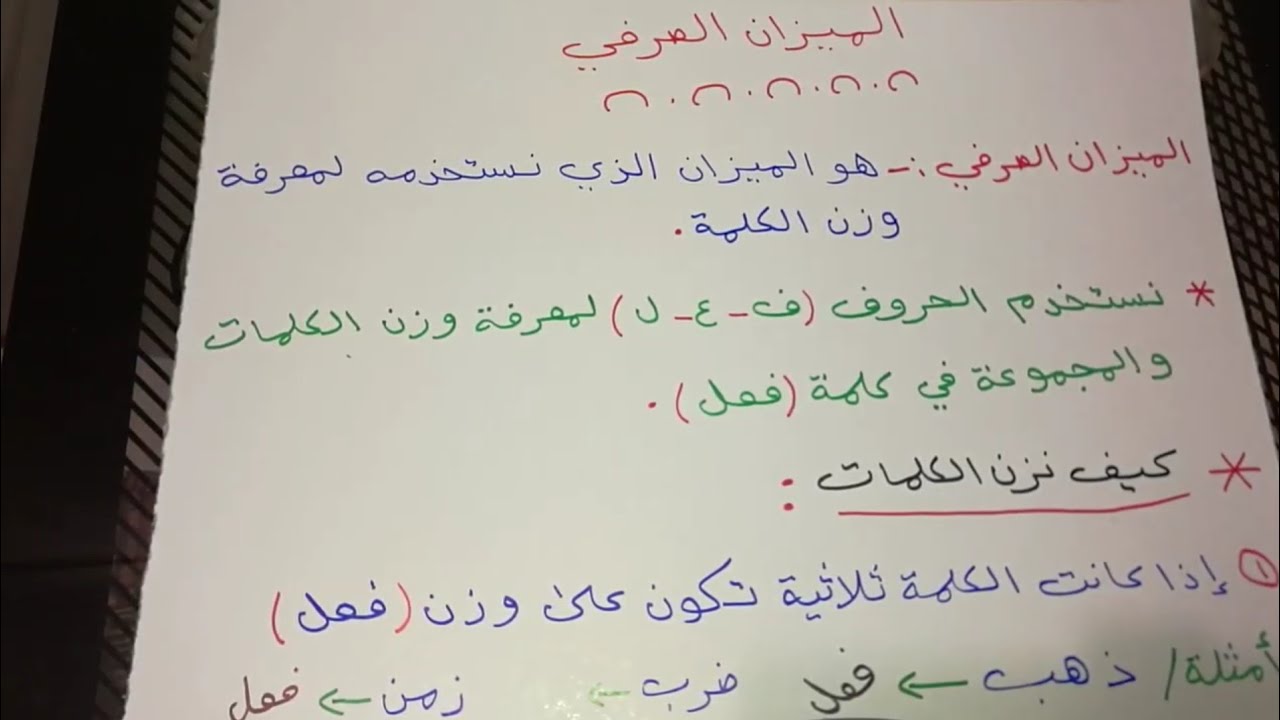 الميزان الصرفي
الميزان الصرفي :- هو الميزان الذي نستخدمه لمعرفة
وزن الكلمة.
* نستخدم الحروف (ف - ع - ل) لمعرفة وزن الكلمات
والمجموعة في كلمة (فعل).
* كيف نزن الكلمات :
① إذا كانت الكلمة ثلاثية تكون على وزن (فعل)
أمثلة/ ذهب ← فعل ضرب ← زمن ← فعل